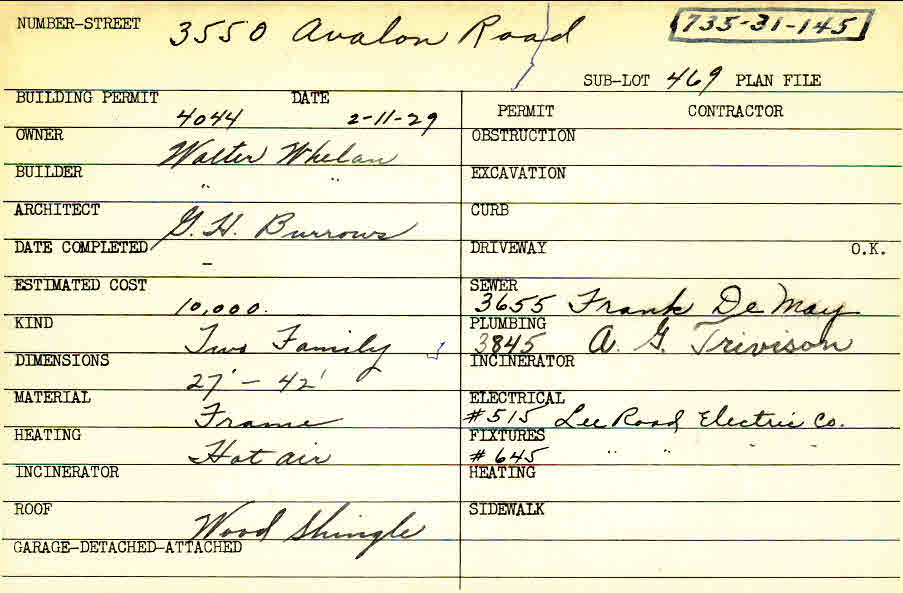 NUMBER-STREET 3550 Avalon Road 735-31-145
SUB-LOT 469 PLAN FILE
BUILDING PERMIT 4044 DATE 2-11-29
PERMIT CONTRACTOR
OWNER Walter Whelan
OBSTRUCTION
BUILDER " "
EXCAVATION
ARCHITECT G. H. Burrows
CURB
DATE COMPLETED -
DRIVEWAY O.K.
ESTIMATED COST 10,000.
SEWER 3655 Frank De May
KIND Two Family
PLUMBING 3845 A. G. Trivison
DIMENSIONS 27' - 42'
INCINERATOR
MATERIAL Frame
ELECTRICAL #515 Lee Road Electric Co.
HEATING Hot air
FIXTURES #645 " " " "
INCINERATOR
HEATING
ROOF Wood Shingle
SIDEWALK
GARAGE-DETACHED-ATTACHED